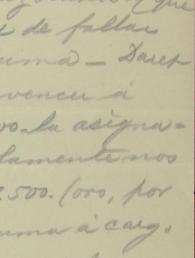 que
de fallar
uma - Daret
vencer á
vo-la asigna=
lamente nos
.500. (oro, por
uma á carg.